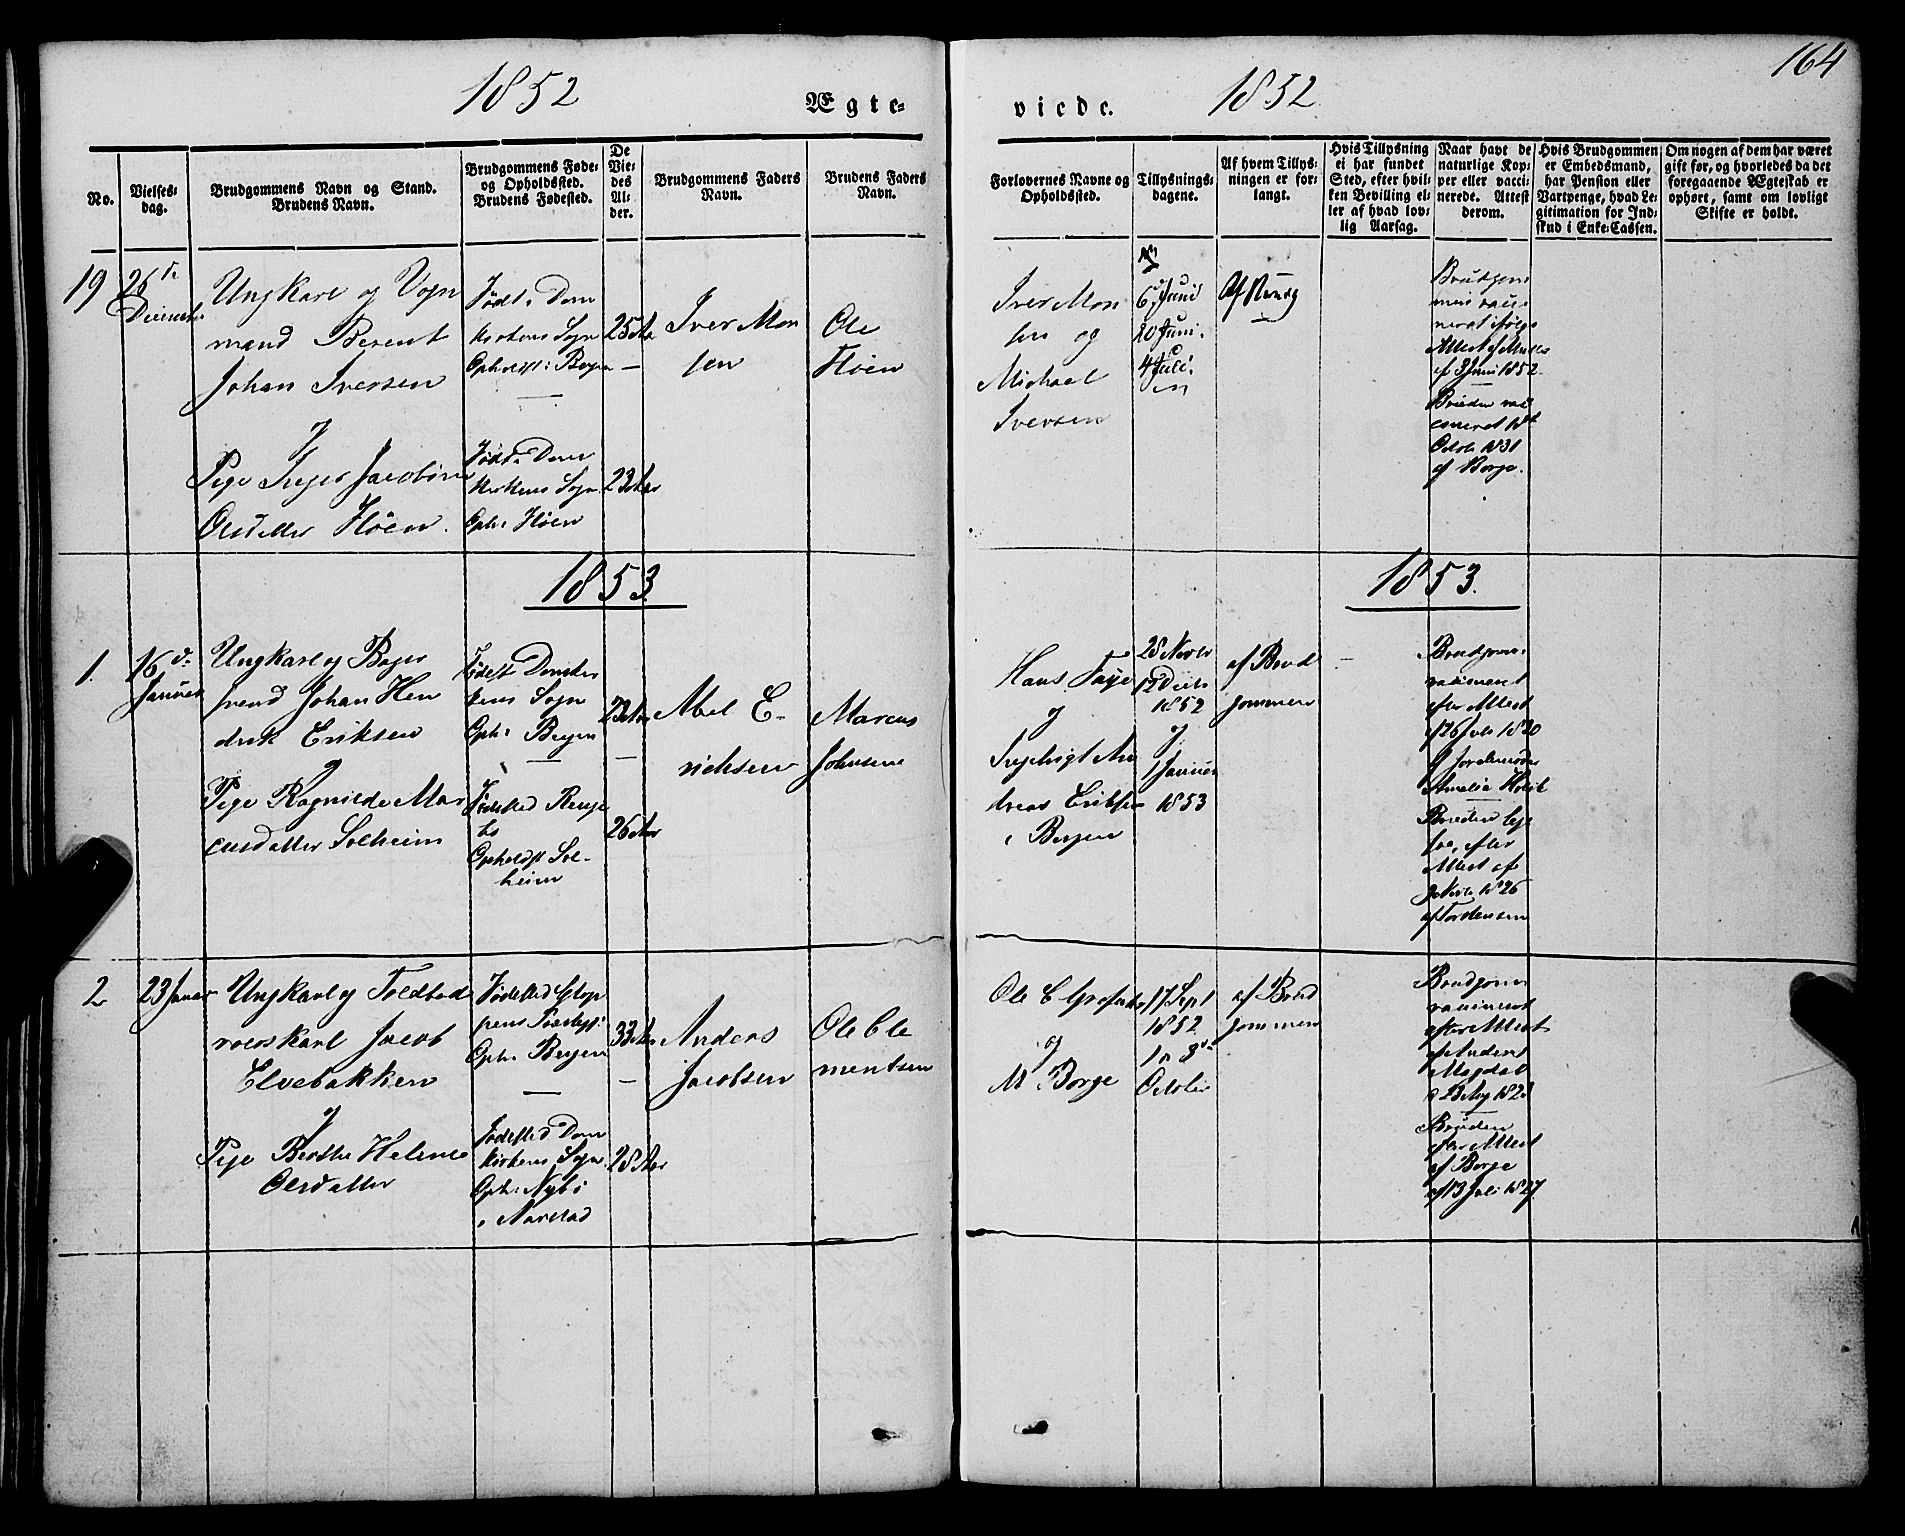 164
1852
Ægte-
viede.
1852.
No.
Vielses-
dag.
Brudgommens Navn og Stand.
Brudens Navn.
Brudgommens Føde-
og Opholdssted.
Brudens Fødested.
De
Vie-
des
Al-
der.
Brudgommens Faders
Navn.
Brudens Faders
Navn.
Forlovernes Navne og
Opholdssted.
Tillysnings-
dagene.
Af hvem Tillys-
ningen er for-
langt.
Hvis Tillysning
ei har fundet
Sted, efter hvil-
ken Bevilling el-
ler af hvad lov-
lig Aarsag.
Naar havt de
naturlige Kop-
per eller vacci-
nerede. Attest
derom.
Hvis Brudgommen
er Embedsmand,
har Pension eller
Vartpenge, hvad Le-
gitimation for Ind-
skud i Enke-Cassen.
Om nogen af dem har været
gift før, og hvorledes da det
foregaaende Ægteskab er
ophørt, samt om lovligt
Skifte er holdt.
19
26
Ungkarl og Vogn
mand Berent
Johan Iversen
Pige Inger Jacobine
Olsdatter Høen.
Født: Dom
kirkens Sogn
Opholdst: Bergen
Født: Dom
kirkens Sogn
Oph: Høen
25 Aar
23 Aar
Iver Mon
sen
Ole
Høen
Iver Mon
sen og
Michael
Iversen
6 Juni
20 Juni
4 Juli
Brudgom
Attest af
af 3 Juni 1852
Bruden vac
cineret
Octob 1831
af Borge.
1853
1853.
1.
16
Januar
Ungkarl og Bager
svend Johan Hen
drik Eriksen
og
Pige Ragnilde Mar
cusdatter Solheim
Fødest Domkir
kens Sogn
Oph: Bergen
Fødested
Opholdst Sol-
heim
23 Aar
26 Aar
Abel E-
richsen
Marcus
Johnsen
Hans Faye
og
Ingebrigt An
dreas Eriksen
i Bergen
28 Novbr
12 Decbr
1852
og
1 Januar
1853
af Brud
gommen
Brudgom
vaccineret
efter Attest
Amalia Holst
Bruden
efter
Attest af
2
23 Januar
Ungkarl og Toldbod
roerskarl Jacob
Elvebakken
og
Pige Berthe Helene
Olsdatter
Fødested Glop
pens Præstegj:
Oph: Bergen
Fødested Dom
kirkens Sogn.
Oph: Nybø
i Aarstad
33 Aar
28 Aar
Anders
Jacobsen
Ole Cle
mentsen
Ole C
og
M. Borge
17 Sept
1852
Octobr
af Brud
gommen
Brudgom
vaccineret
efter Attest
Bruden
efter Attest
af Borge
af 13 Juli 1827